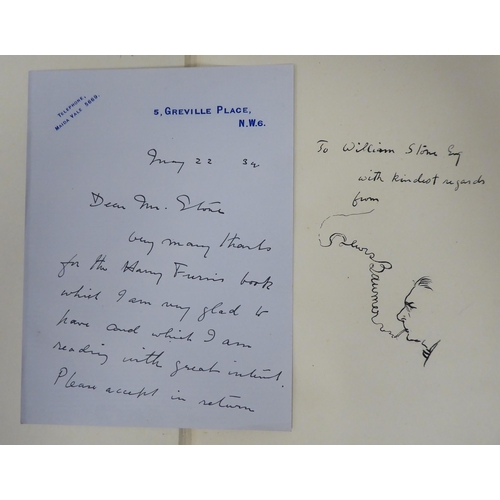 TELEPHONE,
MAIDA VALE 3669.
5, GREVILLE PLACE,
N.W.6.
May 22 32
Dear Mr. Stone
very many thanks
for the Harry Furniss book
which I am very glad to
have and which I am
reading with great interest.
Please accept in return
To William Stone Esq
with kindest regards
from
Lewis Baumer